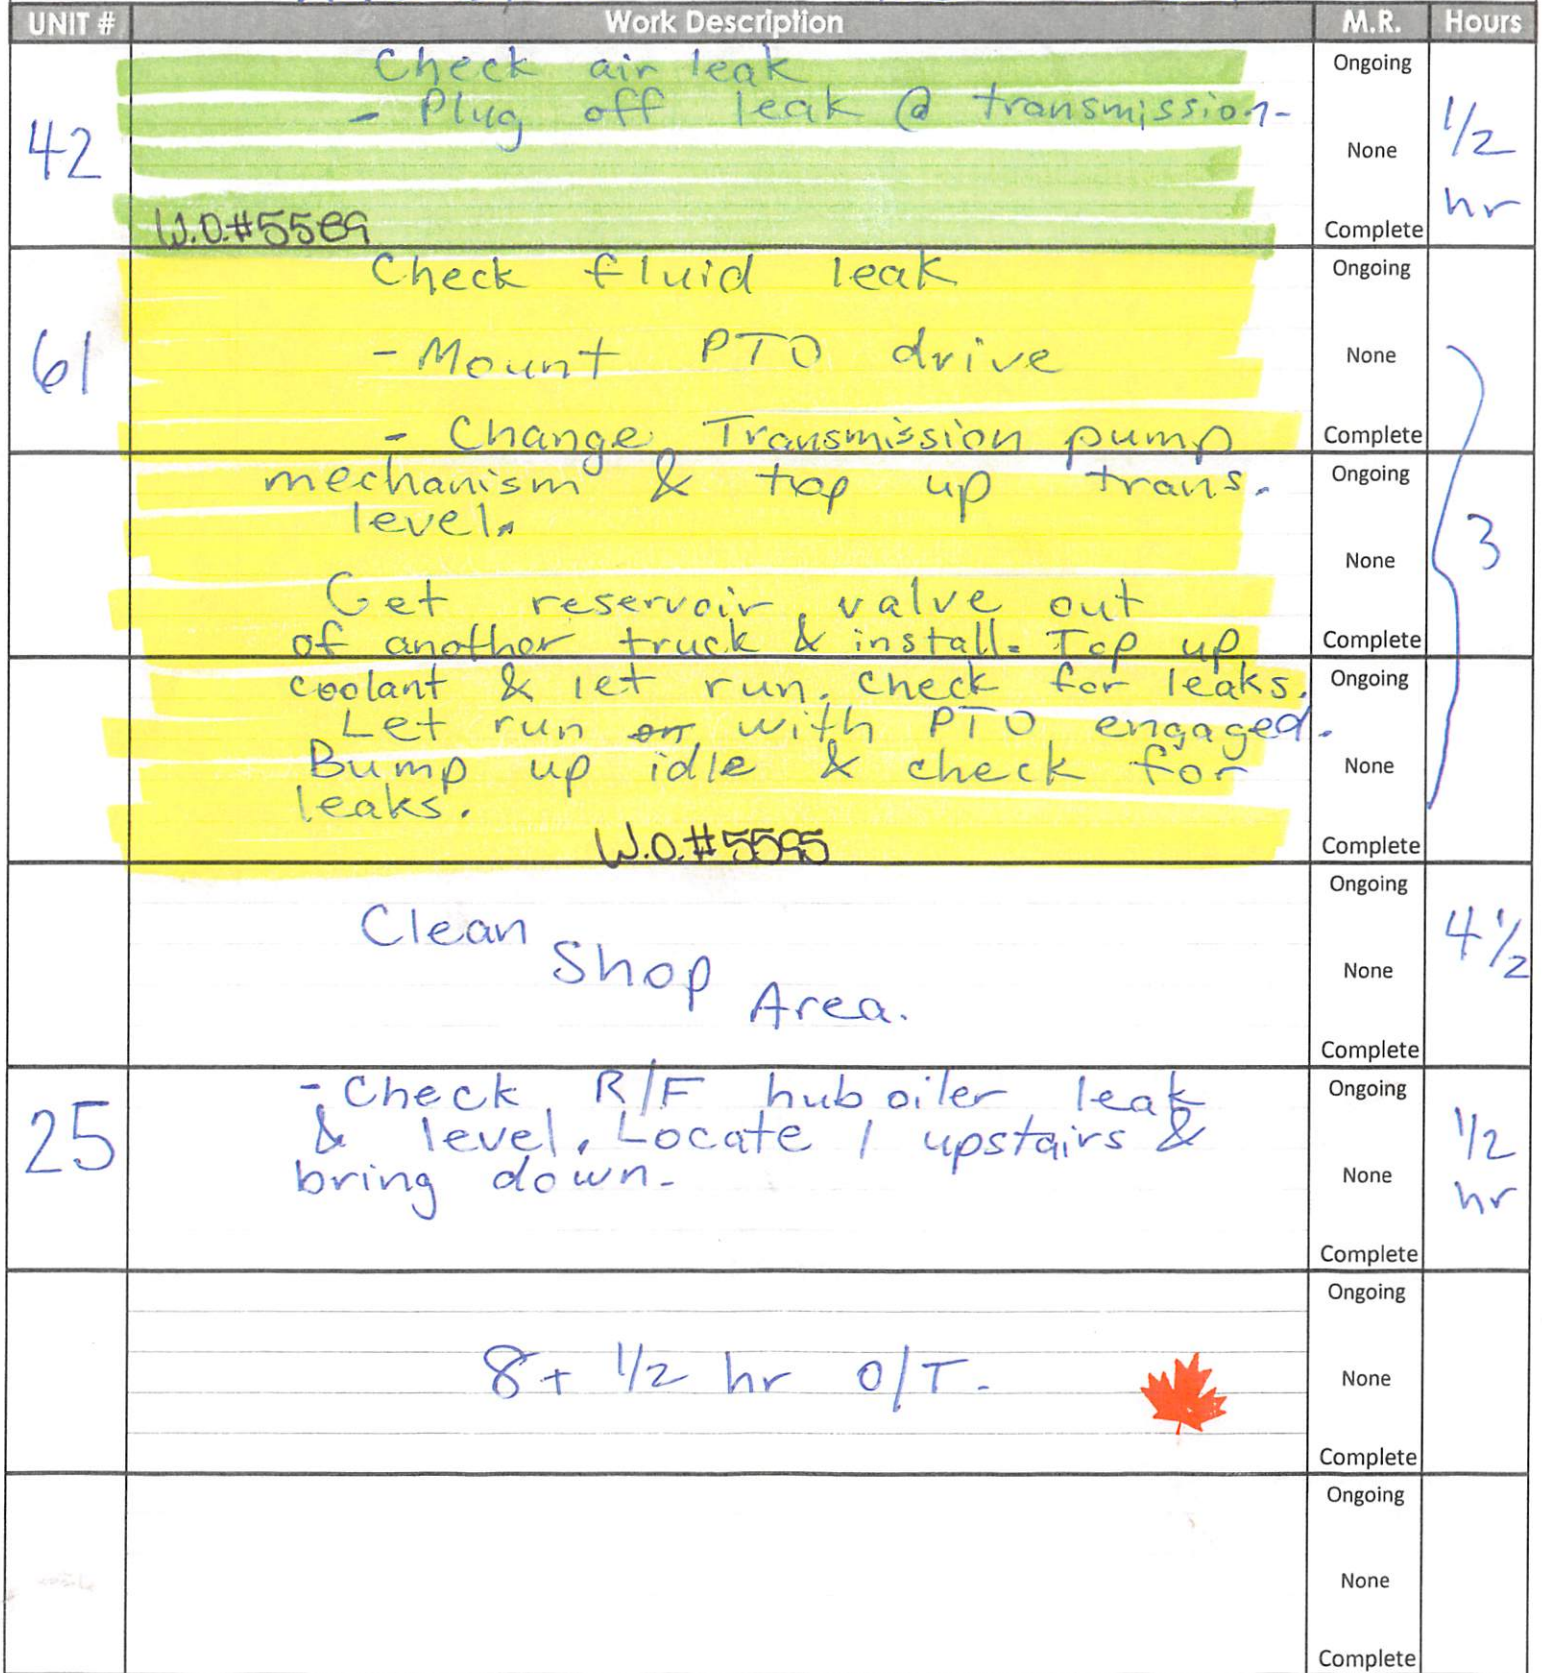 UNIT # Work Description M.R. Hours
Check air leak
- Plug off leak @ transmission-
42
W.O.#5589
Ongoing
None
Complete
1/2
hr
61
Check fluid leak
- Mount PTO drive
- Change Transmission pump
mechanism & top up trans.
level.
Get reservoir valve out
of another truck & install. Top up
coolant & let run. Check for leaks.
Let run on with PTO engaged.
Bump up idle & check for
leaks.
W.O.#5595
Ongoing
None
Complete
Ongoing
None
Complete
Ongoing
None
Complete
3
Clean
Shop
Area.
Ongoing
None
Complete
4 1/2
25
- Check R/F hub oiler leak
& level. Locate 1 upstairs &
bring down.
Ongoing
None
Complete
1/2
hr
8 + 1/2 hr O/T.
Ongoing
None
Complete
Ongoing
None
Complete